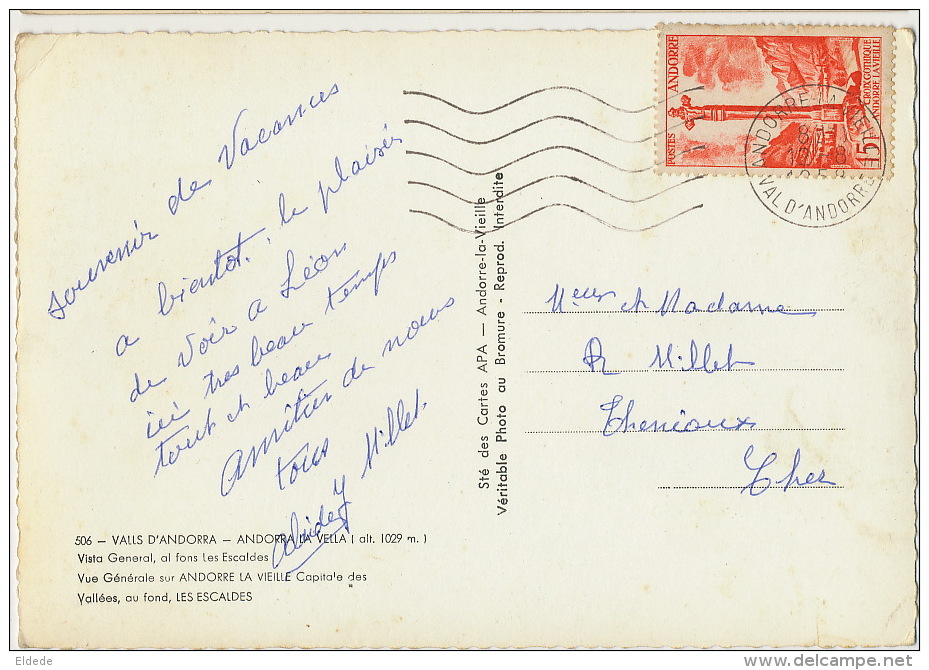 souvenir de Vacances
a bientot, le plaisir
de voir a Léon
ici tres beau temps
tout et beau
Amitier de nous
tous
Millet.
ANDORRE
POSTES
CROIX GOTHIQUE
ANDORRE LA VIEILLE
15F
ANDORRE-LA-VIEILLE
VAL D'ANDORRE
Sté des Cartes APA — Andorre-la-Vieille
Véritable Photo au Bromure - Reprod. Interdite
Mr et Madame
R Millet
Thenioux
Cher
506 — VALLS D'ANDORRA — ANDORRA LA VELLA ( alt. 1029 m. )
Vista General, al fons Les Escaldes
Vue Générale sur ANDORRE LA VIEILLE Capitale des
Vallées, au fond, LES ESCALDES
Eldede
http://www.delcampe.net